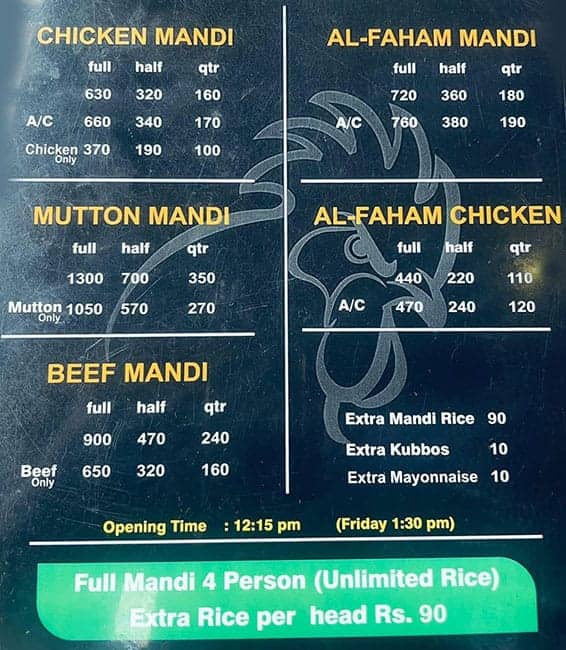 CHICKEN MANDI
full half qtr
630 320 160
A/C 660 340 170
Chicken Only 370 190 100
MUTTON MANDI
full half qtr
1300 700 350
Mutton Only 1050 570 270
BEEF MANDI
full half qtr
900 470 240
Beef Only 650 320 160
AL-FAHAM MANDI
full half qtr
720 360 180
A/C 760 380 190
AL-FAHAM CHICKEN
full half qtr
440 220 110
A/C 470 240 120
Extra Mandi Rice 90
Extra Kubbos 10
Extra Mayonnaise 10
Opening Time : 12:15 pm (Friday 1:30 pm)
Full Mandi 4 Person (Unlimited Rice)
Extra Rice per head Rs. 90